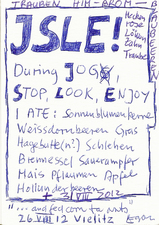 TRAUBEN HIM-BROM-
BEEREN
Rosen
Löwen
Zahn
Traube
JSLE!
During JOG,
STOP, LOOK, ENJOY
I ATE: Sonnenblumenkerne
Weissdornbeeren Gras
Hagebutte(n?) Schlehen
Biennessel Sauerampfer
Mais Pflaumen Apfel
Hollunderbeeren
+ 3 VIII 2012
"... and fed corn to nuts"
26 VIII 12 Vielitz Egon